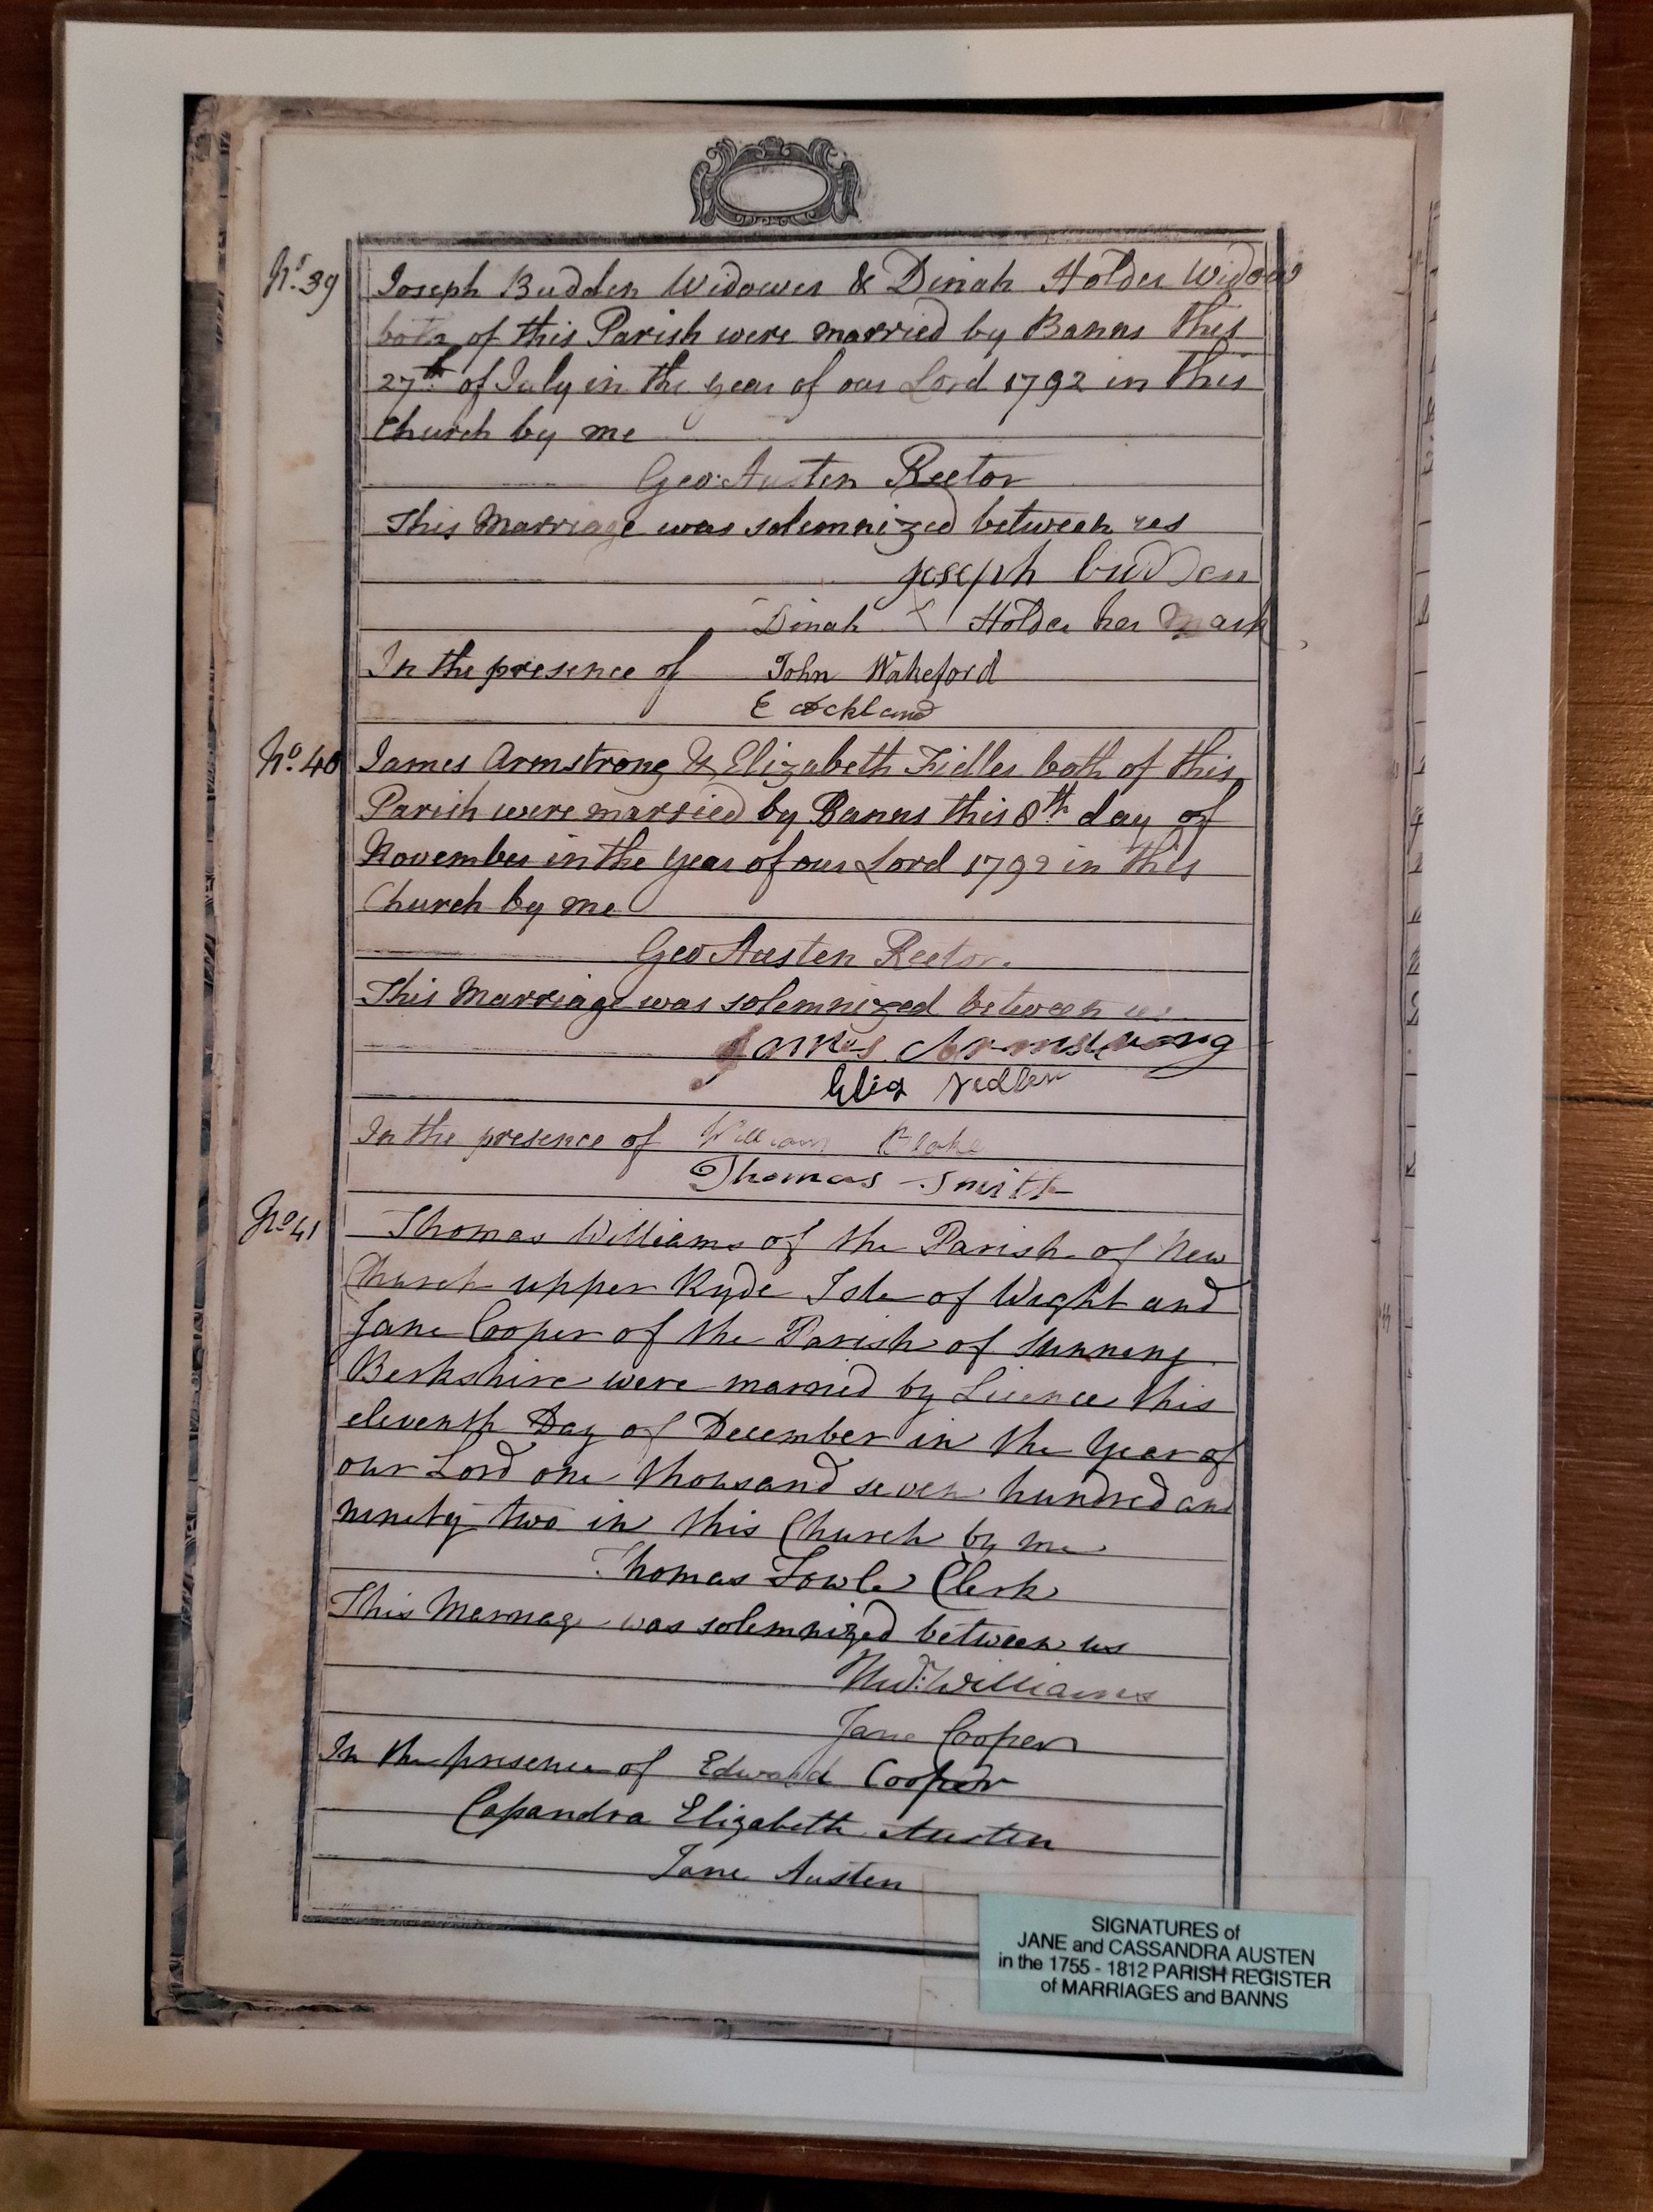 No. 39
Joseph Budden Widower & Dinah Holder Widow
both of this Parish were married by Banns this
27th of July in the year of our Lord 1792 in this
Church by me
Geo: Austen Rector
This Marriage was solemnized between us
joseph budden
Dinah X Holder her mark
In the presence of John Wakeford
E
No. 40
James Armstrong & Elizabeth Fidler both of this
Parish were married by Banns this 8th day of
November in the year of our Lord 1792 in this
Church by me
Geo Austen Rector.
This Marriage was solemnized between us
James Armstrong
Eliz
In the presence of William Blake
Thomas Smith
No 41
Thomas Williams of the Parish of New
Church upper Ryde Isle of Wight and
Jane Cooper of the Parish of Sunning
Berkshire were married by Licence this
eleventh Day of December in the Year of
our Lord one thousand seven hundred and
ninety two in this Church by me
Thomas Fowle Clerk
This Marriage was solemnized between us
Thos: Williams
Jane Cooper
In the presence of Edward Cooper
Cassandra Elizabeth Austen
Jane Austen
SIGNATURES of
JANE and CASSANDRA AUSTEN
in the 1755 - 1812 PARISH REGISTER
of MARRIAGES and BANNS